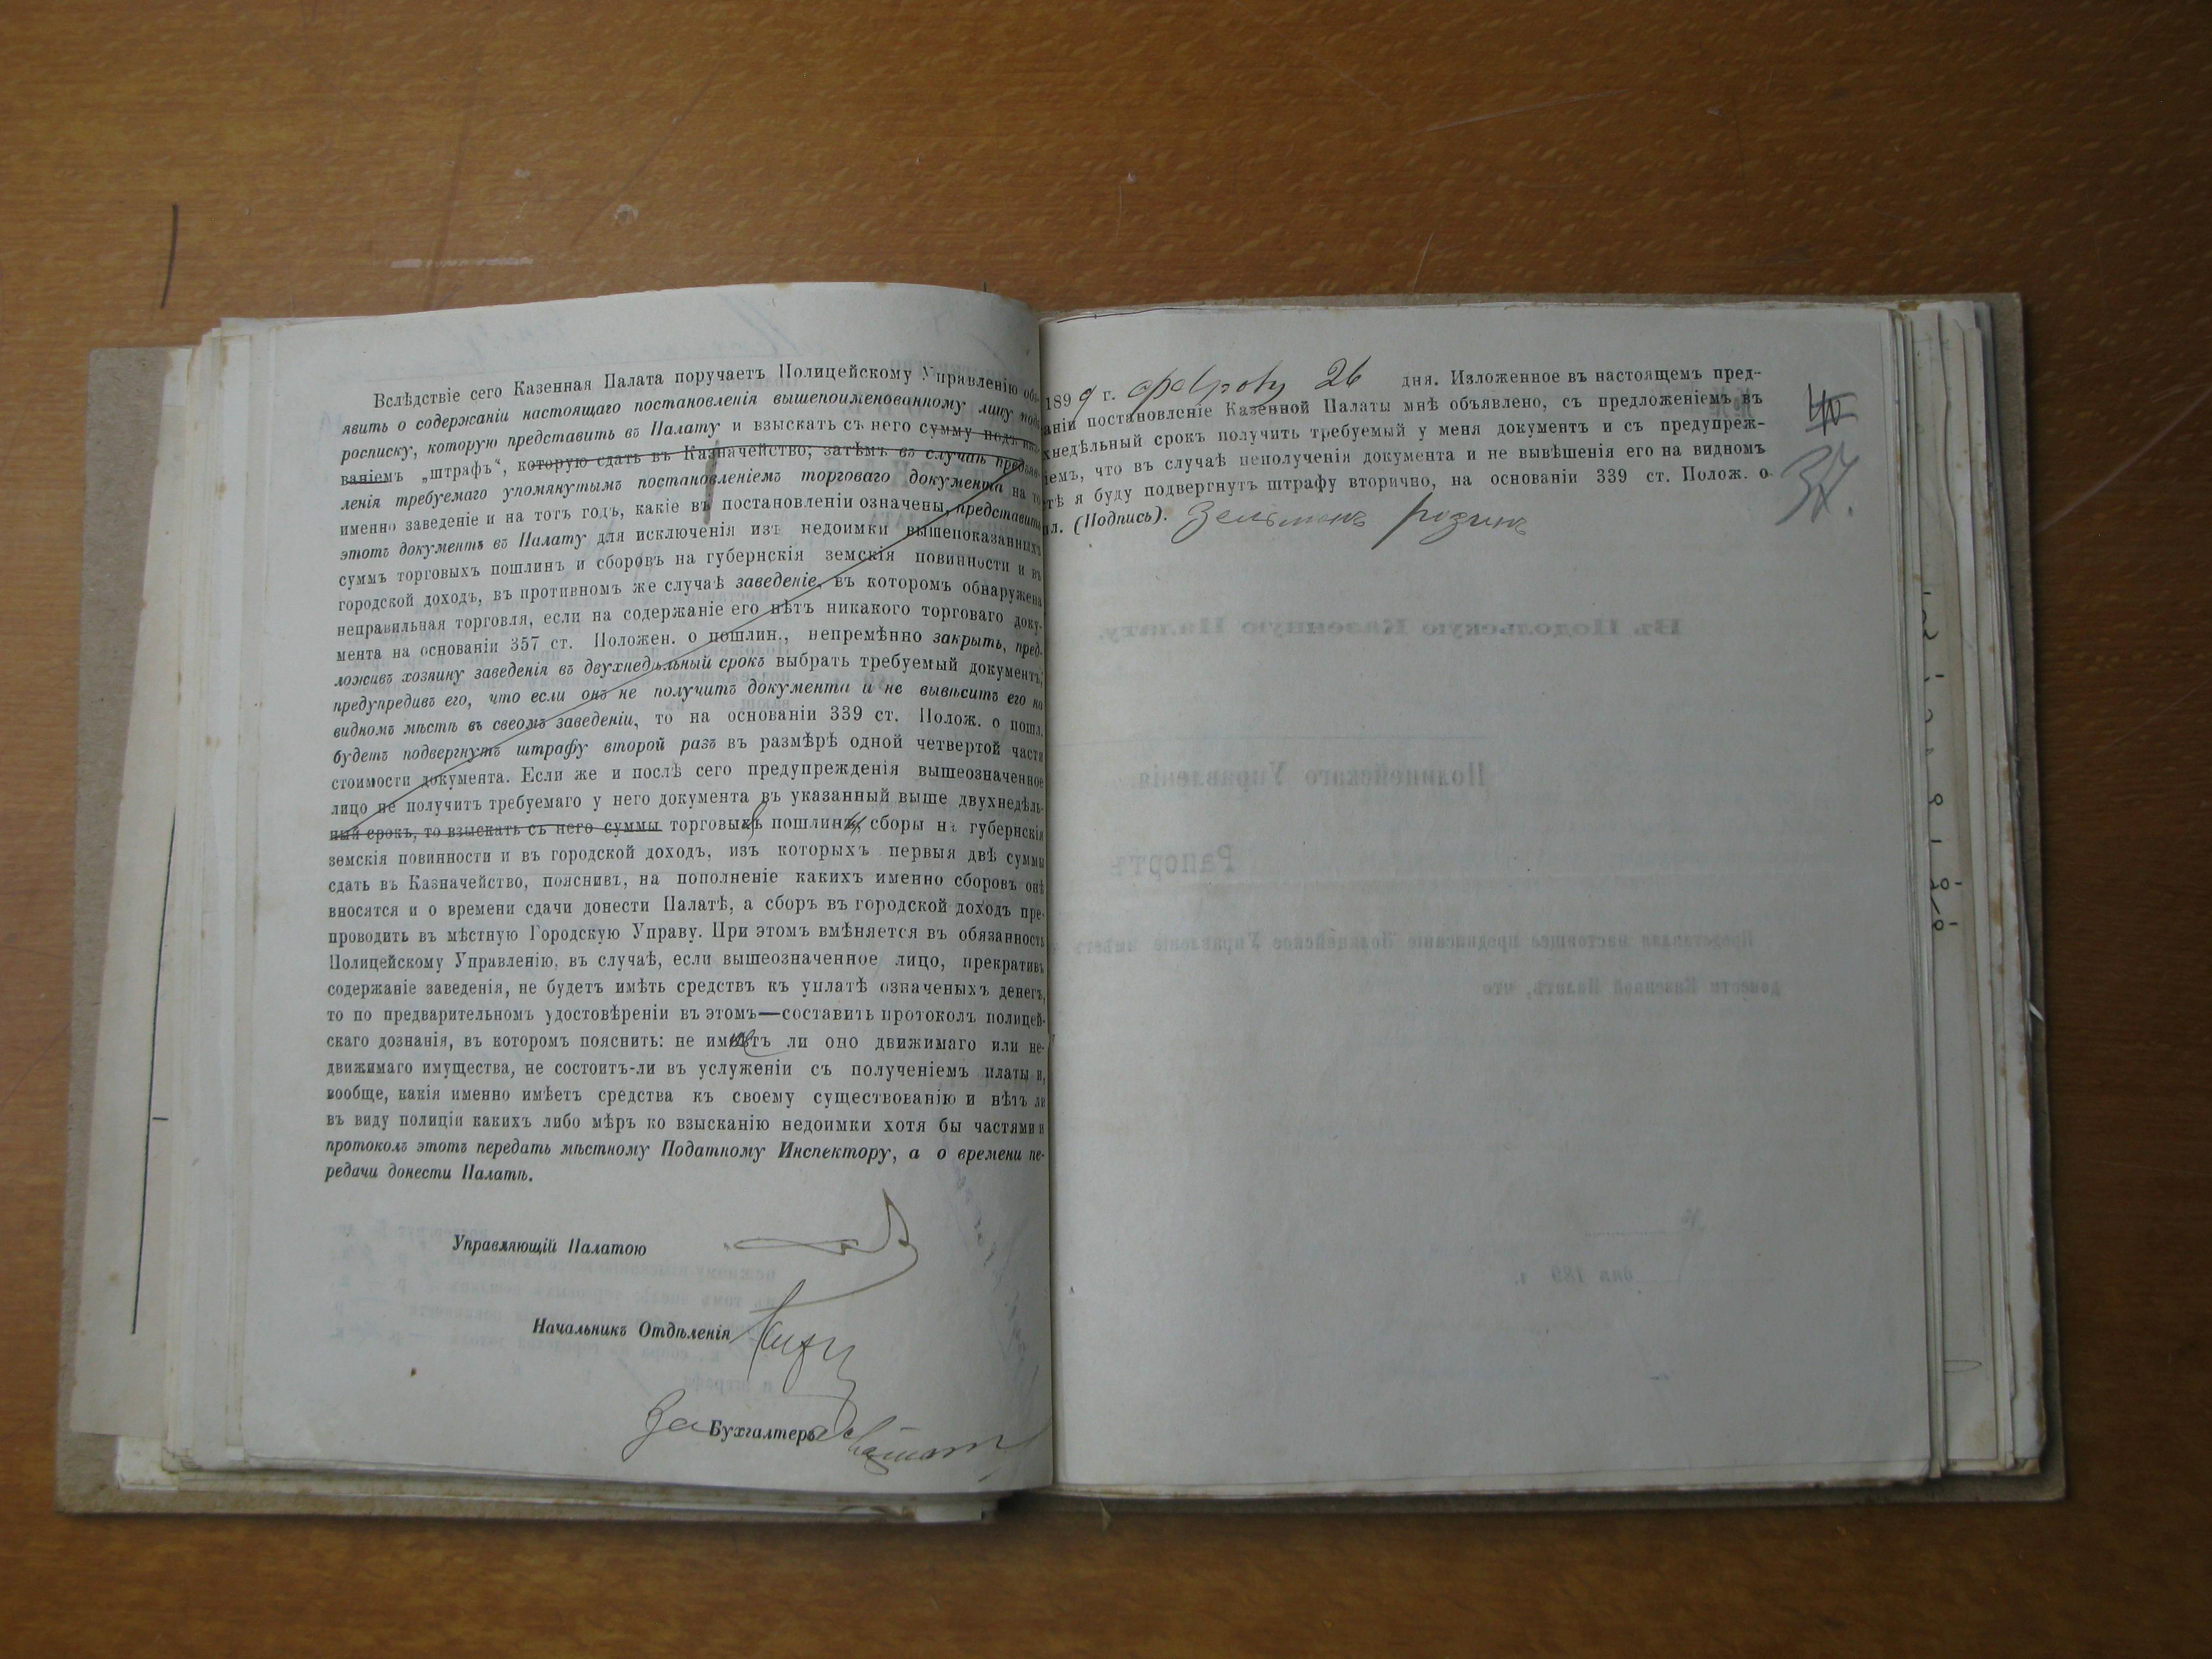 Вслѣдствіе сего Казенная Палата поручаетъ Полицейскому Управленію объ-
явить о содержаніи настоящаго постановленія вышепоименованному лицу подъ
росписку, которую представить въ Палату и взыскать съ него сумму подъ наз-
ваніемъ „штрафъ“, которую сдать въ Казначейство, затѣмъ въ случаѣ предъяв-
ленія требуемаго упомянутымъ постановленіемъ торговаго документа на то
именно заведеніе и на тотъ годъ, какіе въ постановленіи означены, представить
этотъ документъ въ Палату для исключенія изъ недоимки вышепоказанныхъ
суммъ торговыхъ пошлинъ и сборовъ на губернскія земскія повинности и въ
городской доходъ, въ противномъ же случаѣ заведеніе, въ которомъ обнаружена
неправильная торговля, если на содержаніе его нѣтъ никакого торговаго доку-
мента на основаніи 357 ст. Положен. о пошлин., непремѣнно закрыть, пред-
ложивъ хозяину заведенія въ двухнедѣльный срокъ выбрать требуемый документъ,
предупредивъ его, что если онъ не получитъ документа и не вывѣситъ его на
видномъ мѣстѣ въ свеомъ заведеніи, то на основаніи 339 ст. Полож. о пошл.
будетъ подвергнутъ штрафу второй разъ въ размѣрѣ одной четвертой части
стоимости документа. Если же и послѣ сего предупрежденія вышеозначенное
лицо не получитъ требуемаго у него документа въ указанный выше двухнедѣль-
ный срокъ, то взыскать съ него суммы торговыхъ пошлинъ, сборы на губернскія
земскія повинности и въ городской доходъ, изъ которыхъ первыя двѣ суммы
сдать въ Казначейство, пояснивъ, на пополненіе какихъ именно сборовъ онѣ
вносятся и о времени сдачи донести Палатѣ, а сборъ въ городской доходъ пре-
проводить въ мѣстную Городскую Управу. При этомъ вмѣняется въ обязанность
Полицейскому Управленію, въ случаѣ, если вышеозначенное лицо, прекративъ
содержаніе заведенія, не будетъ имѣть средствъ къ уплатѣ означеныхъ денегъ,
то по предварительномъ удостовѣреніи въ этомъ—составить протоколъ полицей-
скаго дознанія, въ которомъ пояснить: не имѣетъ ли оно движимаго или не-
движимаго имущества, не состоитъ-ли въ услуженіи съ полученіемъ платы и,
вообще, какія именно имѣетъ средства къ своему существованію и нѣтъ ли
въ виду полиціи какихъ либо мѣръ ко взысканію недоимки хотя бы частями и
протоколъ этотъ передать мѣстному Податному Инспектору, а о времени пе-
редачи донести Палатѣ.
Управляющій Палатою
Начальникъ Отдѣленія
За Бухгалтера
1899 г. 26 дня. Изложенное въ настоящемъ пред-
аніи постановленіе Казенной Палаты мнѣ объявлено, съ предложеніемъ въ
хнедѣльный срокъ получить требуемый у меня документъ и съ предупреж-
іемъ, что въ случаѣ неполученія документа и не вывѣшенія его на видномъ
тѣ я буду подвергнутъ штрафу вторично, на основаніи 339 ст. Полож. о
л. (Подпись). Зельманъ Розинъ
37.